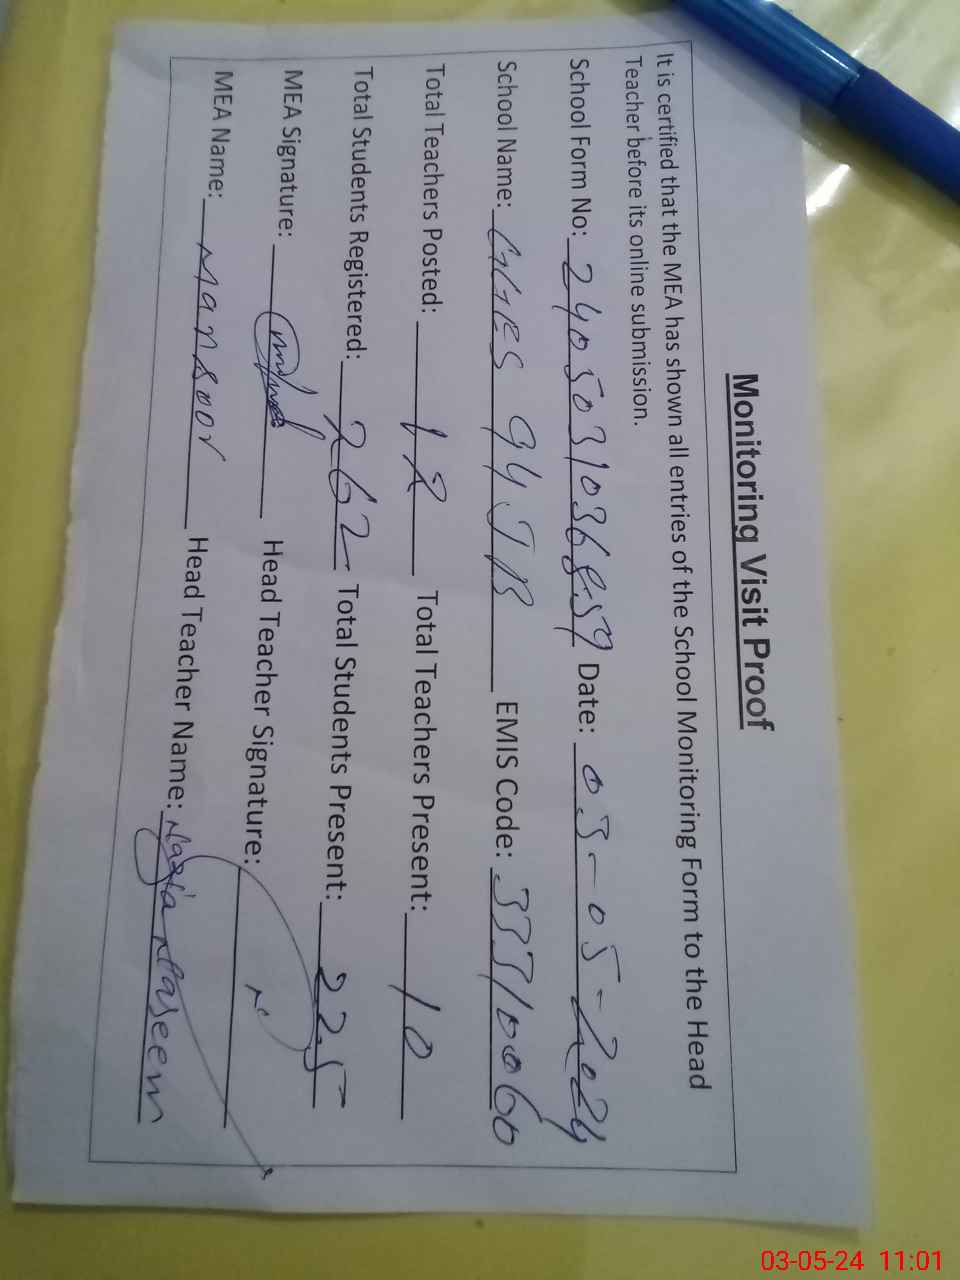 Monitoring Visit Proof
It is certified that the MEA has shown all entries of the School Monitoring Form to the Head
Teacher before its online submission.
School Form No: 2405031036859 Date: 03-05-2024
School Name: GGES 94 JB EMIS Code: 33310060
Total Teachers Posted: 12 Total Teachers Present: 10
Total Students Registered: 262 Total Students Present: 225
MEA Signature: Head Teacher Signature:
MEA Name: Mansoor Head Teacher Name: Nazia Naseem
03-05-24 11:01